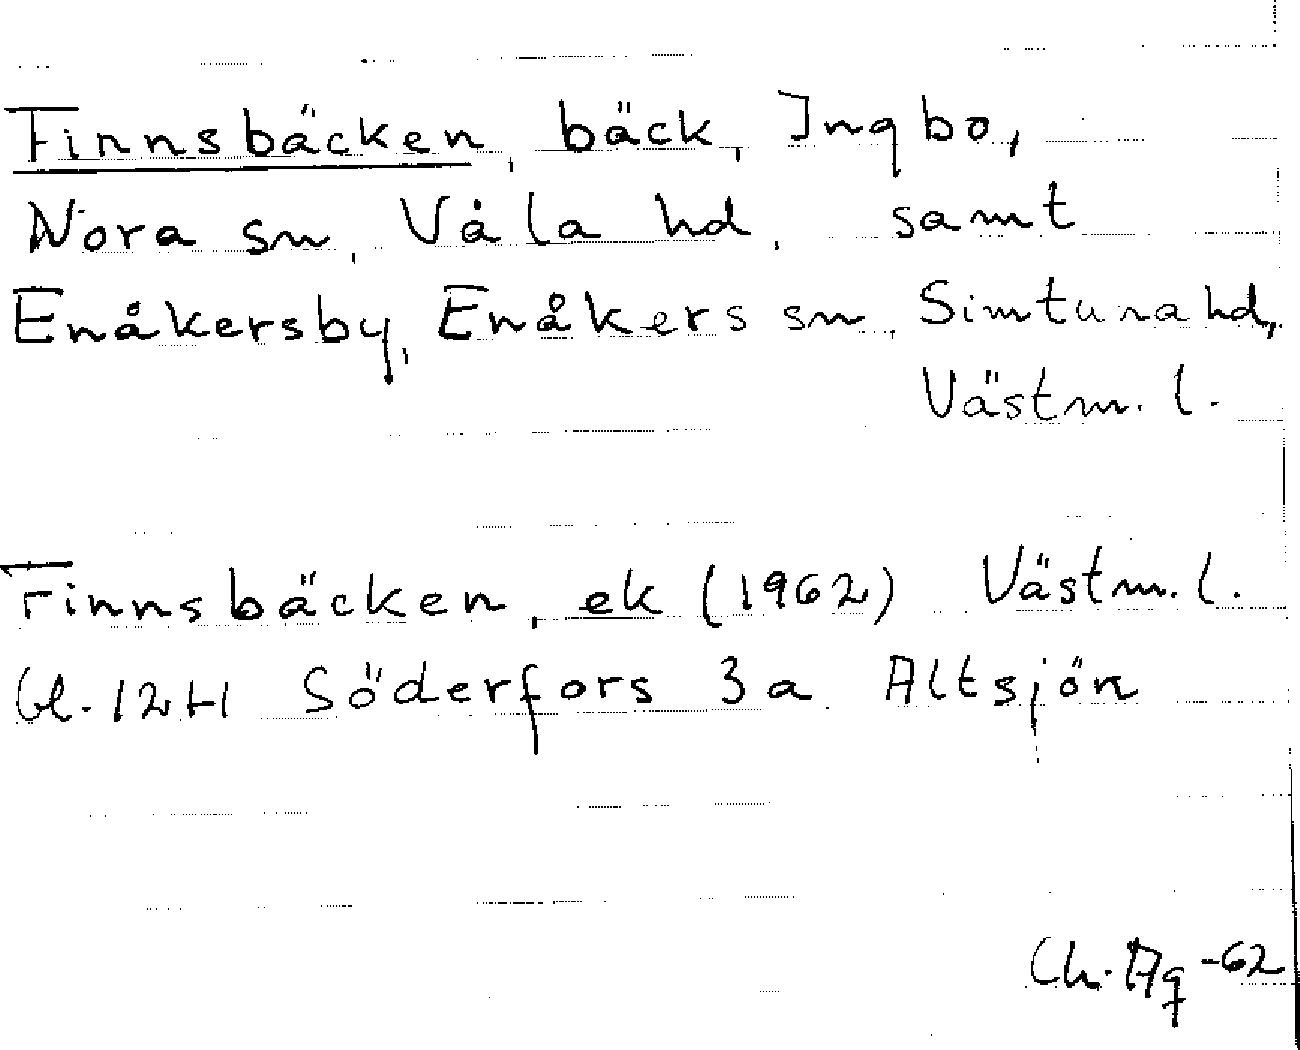 Finnsbäcken, bäck, Ingbo,
Nora sn, Våla hd, samt
Enåkersby, Enåkers sn, Simtuna hd,
Västm. l.
Finnsbäcken, ek (1962) Västm. l.
bl. 12H Söderfors 3a Altsjön
Ch. Ag -62